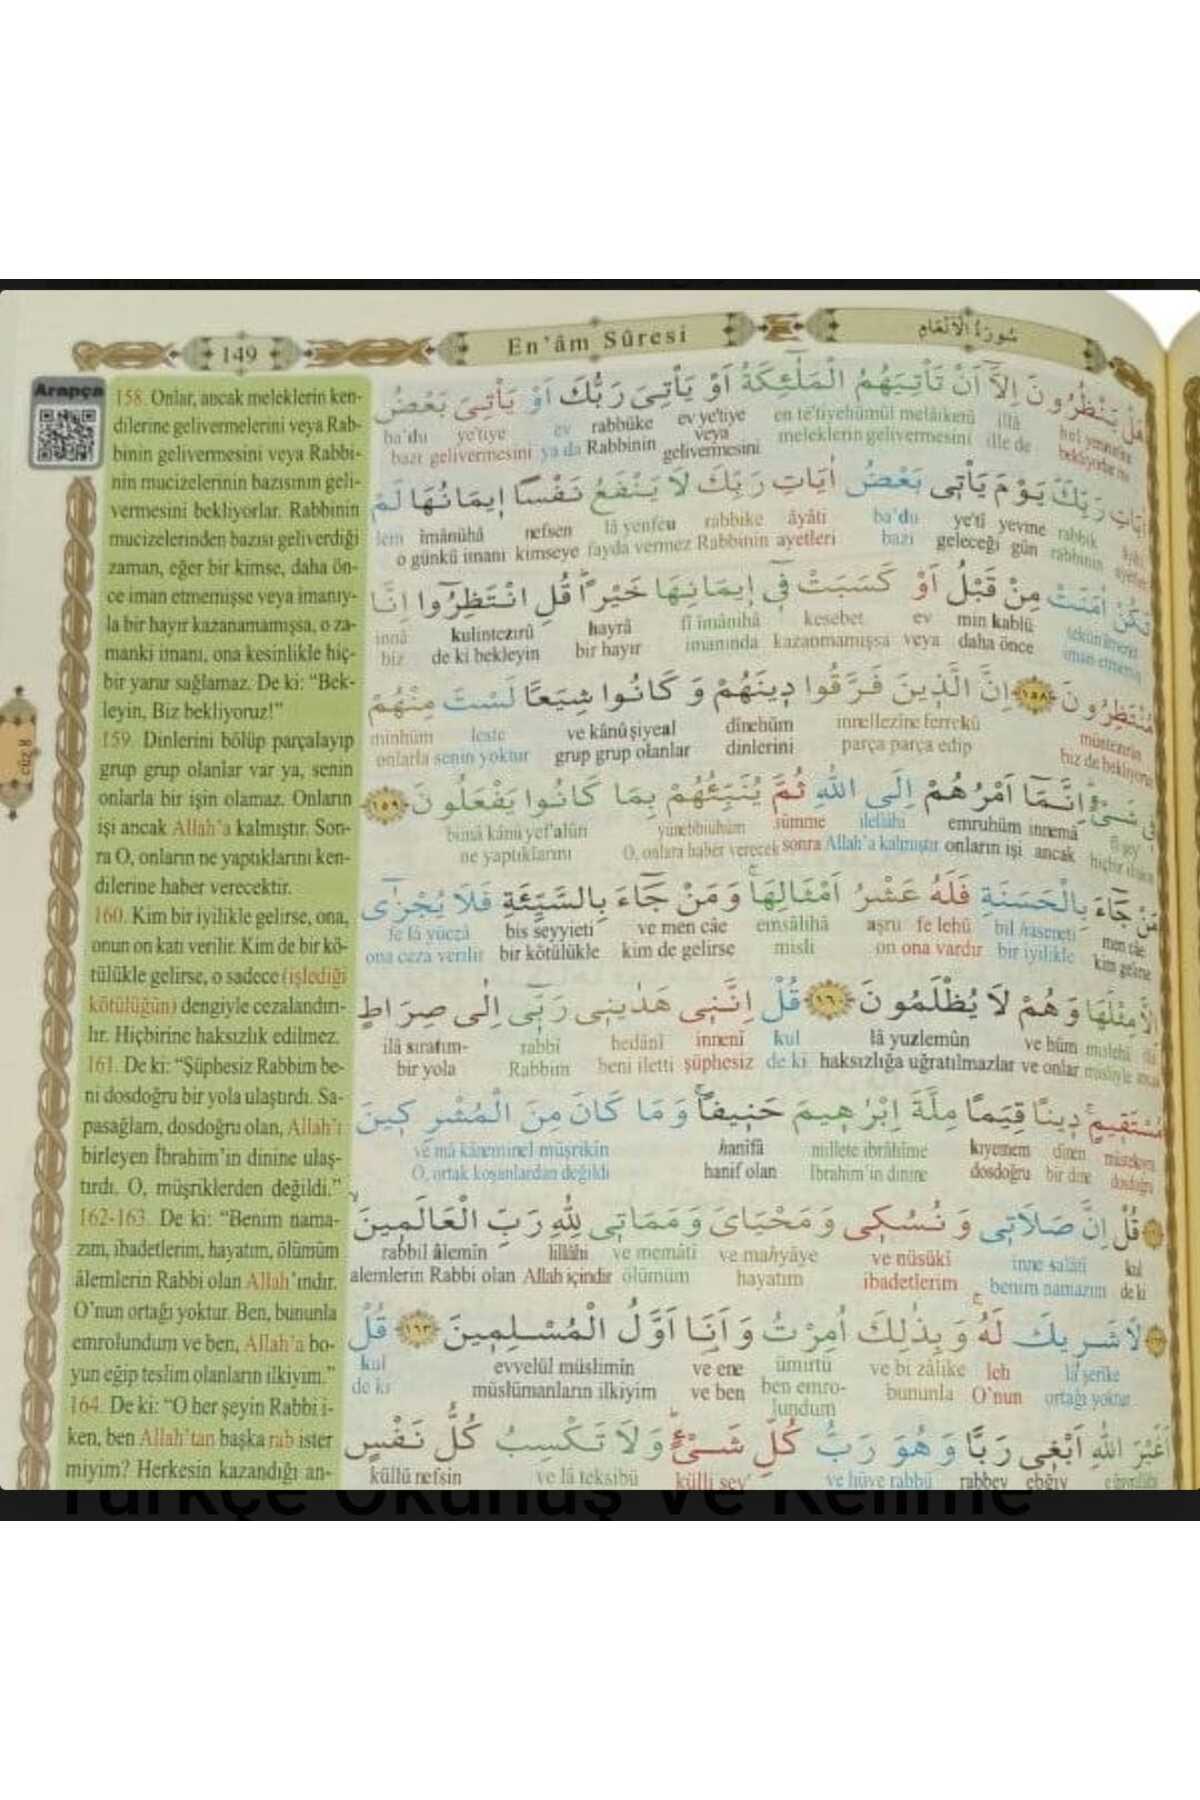 149
En'âm Sûresi
سُورَةُ الْاَنْعَامِ
Arapça
158. Onlar, ancak meleklerin ken-
dilerine gelivermelerini veya Rab-
binin gelivermesini veya Rabbi-
nin mucizelerinin bazısının geli-
vermesini bekliyorlar. Rabbinin
mucizelerinden bazısı geliverdiği
zaman, eğer bir kimse, daha ön-
ce iman etmemişse veya imanıy-
la bir hayır kazanamamışsa, o za-
manki imanı, ona kesinlikle hiç-
bir yarar sağlamaz. De ki: “Bek-
leyin, Biz bekliyoruz!”
159. Dinlerini bölüp parçalayıp
grup grup olanlar var ya, senin
onlarla bir işin olamaz. Onların
işi ancak Allah'a kalmıştır. Son-
ra O, onların ne yaptıklarını ken-
dilerine haber verecektir.
160. Kim bir iyilikle gelirse, ona,
onun on katı verilir. Kim de bir kö-
tülükle gelirse, o sadece (işlediği
kötülüğün) dengiyle cezalandırı-
lır. Hiçbirine haksızlık edilmez.
161. De ki: “Şüphesiz Rabbim be-
ni dosdoğru bir yola ulaştırdı. Sa-
pasağlam, dosdoğru olan, Allah'ı
birleyen İbrahim'in dinine ulaş-
tırdı. O, müşriklerden değildi.”
162-163. De ki: “Benim nama-
zım, ibadetlerim, hayatım, ölümüm
âlemlerin Rabbi olan Allah'ındır.
O'nun ortağı yoktur. Ben, bununla
emrolundum ve ben, Allah'a bo-
yun eğip teslim olanların ilkiyim.”
164. De ki: “O her şeyin Rabbi i-
ken, ben Allah'tan başka rab ister
miyim? Herkesin kazandığı an-
cüz 8
هَلْ يَنْظُرُونَ اِلَّٓا اَنْ تَأْتِيَهُمُ الْمَلٰٓئِكَةُ اَوْ يَأْتِيَ رَبُّكَ اَوْ يَأْتِيَ بَعْضُ
ba'du ye'tiye ev rabbüke ev ye'tiye en te'tiyehümül melâiketü illâ
bazı gelivermesini ya da Rabbinin veya gelivermesini meleklerin gelivermesini ille de
اٰيَاتِ رَبِّكَ يَوْمَ يَأْتِي بَعْضُ اٰيَاتِ رَبِّكَ لَا يَنْفَعُ نَفْسًا اِيمَانُهَا لَمْ
lem îmânühâ nefsen lâ yenfeu rabbike âyâti ba'du ye'tî yevme rabbik
o günkü imanı kimseye fayda vermez Rabbinin ayetleri bazı geleceği gün rabbinin
تَكُنْ اٰمَنَتْ مِنْ قَبْلُ اَوْ كَسَبَتْ فِٓي اِيمَانِهَا خَيْرًا قُلِ انْتَظِرُٓوا اِنَّا
innâ kulintezırû hayrâ fî îmânihâ kesebet ev min kablü
biz de ki bekleyin bir hayır imanında kazanmamışsa veya daha önce
مُنْتَظِرُونَ ﴿١٥٨﴾ اِنَّ الَّذِينَ فَرَّقُوا دِينَهُمْ وَ كَانُوا شِيَعًا لَسْتَ مِنْهُمْ
minhüm leste ve kânû şiyeal dînehüm innellezîne ferrekû
onlarla senin yoktur grup grup olanlar dinlerini parça parça edip
فِي شَيْءٍ اِنَّمَٓا اَمْرُهُمْ اِلَى اللّٰهِ ثُمَّ يُنَبِّئُهُمْ بِمَا كَانُوا يَفْعَلُونَ ﴿١٥٩﴾
bimâ kânû yef'alûn yünebbiühüm sümme ilellâhi emruhüm innemâ
ne yaptıklarını O, onlara haber verecek sonra Allah'a kalmıştır onların işi ancak
مَنْ جَٓاءَ بِالْحَسَنَةِ فَلَهُ عَشْرُ اَمْثَالِهَا وَ مَنْ جَٓاءَ بِالسَّيِّئَةِ فَلَا يُجْزٰٓى
fe lâ yüczâ bis seyyieti ve men câe emsâlihâ aşru fe lehû bil haseneti men câe
ona ceza verilir bir kötülükle kim de gelirse misli on ona vardır bir iyilikle kim gelirse
اِلَّا مِثْلَهَا وَ هُمْ لَا يُظْلَمُونَ ﴿١٦٠﴾ قُلْ اِنَّنِي هَدٰينِي رَبِّٓي اِلٰى صِرَاطٍ
ilâ sıratım- rabbî hedânî innenî kul lâ yuzlemûn ve hüm
bir yola Rabbim beni iletti şüphesiz de ki haksızlığa uğratılmazlar ve onlar
مُسْتَقِيمٍ دِينًا قِيَمًا مِلَّةَ اِبْرٰهِيمَ حَنِيفًا وَ مَا كَانَ مِنَ الْمُشْرِكِينَ
ve mâ kâneminel müşrikîn hanîfâ millete ibrâhîme kıyemem dînen
O, ortak koşanlardan değildi hanif olan İbrahim'in dinine dosdoğru bir dine
قُلْ اِنَّ صَلَاتِي وَ نُسُكِي وَ مَحْيَايَ وَ مَمَاتِي لِلّٰهِ رَبِّ الْعَالَمِينَ
rabbil âlemîn lillâhi ve memâtî ve mahyâye ve nüsükî inne salâtî kul
alemlerin Rabbi olan Allah içindir ölümüm hayatım ibadetlerim benim namazım de ki
لَا شَرِيكَ لَهُ وَ بِذٰلِكَ اُمِرْتُ وَ اَنَا اَوَّلُ الْمُسْلِمِينَ ﴿١٦٣﴾ قُلْ
kul evvelül müslimîn ve ene ümirtü ve bi zâlike leh lâ şerîke
de ki müslümanların ilkiyim ve ben ben emro-lundum bununla O'nun ortağı yoktur
اَغَيْرَ اللّٰهِ اَبْغِي رَبًّا وَ هُوَ رَبُّ كُلِّ شَيْءٍ وَ لَا تَكْسِبُ كُلُّ نَفْسٍ
küllü nefsin ve lâ teksibü külli şey' ve hüve rabbü rabbev ebğıy
Türkçe Okunuş Ve Kelime